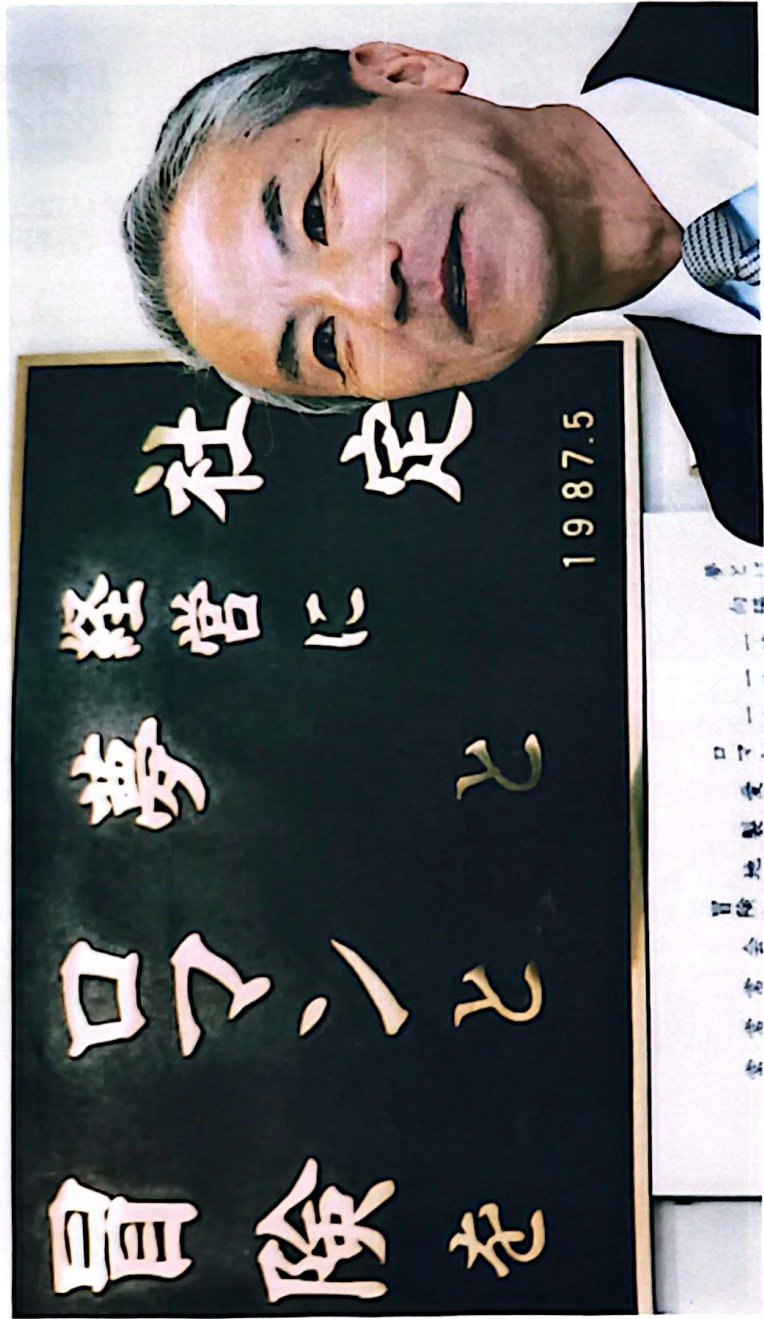 社定
経営に
夢と
ロマンと
冒険を
1987.5